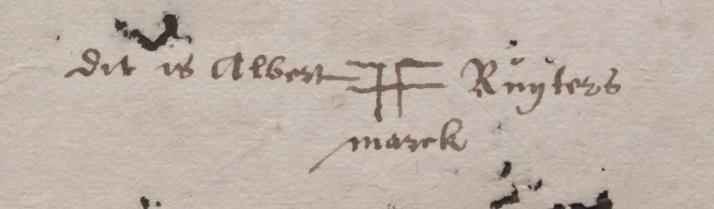 dit is Albert Ruyters
marck